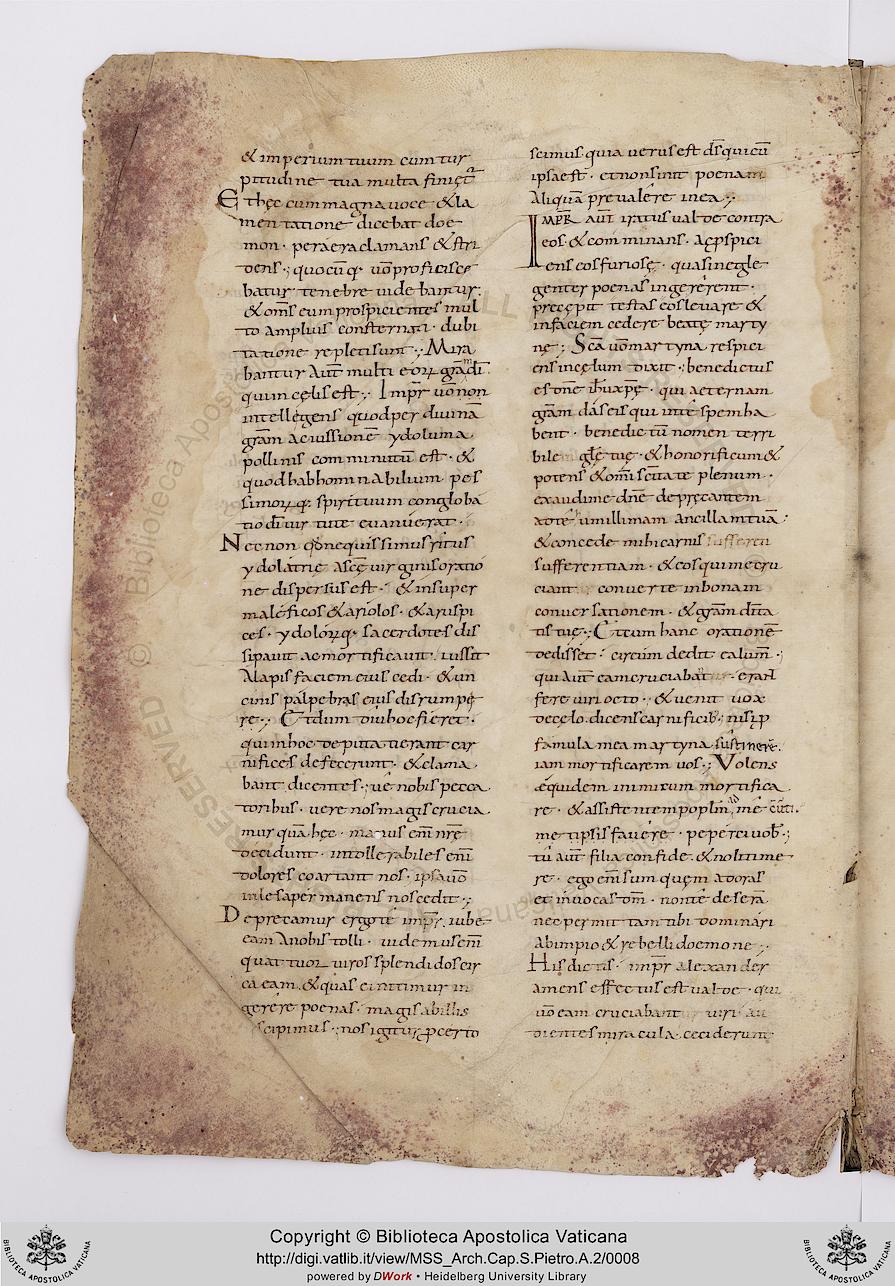 & imperium tuum cum tur
pitudine tua multa finiet̃
Et hęc cum magna voce & la
mentatione dicebat doe
mon · per aera clamans & stri
dens ·; quocũq· uõ proficisce
batur tenebre uidebantur:
& om̃s eum prospicientes mul
to amplius consternati · dubi
tatione repleti sunt ·; Mira
bantur aut̃ multi
qui in cęlis est ·; Imp̃r uõ non
intellegens quod per diuinã
gr̃am ac iussionẽ ydolum a
pollinis comminutũ est · &
quod babhominabilium pes
simorumq· spirituum congloba
tio di uirtute euanuerat ·
Necnon nequissimus ritus
ydolatrię a scę uirginis oratio
ne dispersus est · & insuper
maleficos & ariolos · & aruspi
ces · ydolorumq· sacerdotes dis
sipauit ac mortificauit · iussit
alapis faciem eius cedi · & un
cinis palpebras eius disrumpe
re ·; Et dum diu hoc fieret ·
qui in hoc deputati erant car
nifices defecerunt · & clama
bant dicentes ·; uę nobis pecca
toribus · uere nos magis crucia
mur quã hęc · manus eni nr̃ę
occidunt · intollerabiles eni
dolores coartant nos · ipsa uõ
inlesa permanens nos cedit ·;
Deprecamur ergo te imp̃r · iube
eam a nobis tolli · uidemus eni
quattuor uiros splendidos cir
ca eam · & quas eï nitimur in
gerere poenas · magis ab illis
scipimus · nos igitur ꝓcerto
scimus quia uerus est ds̃ qui cũ
ipsa est · et non sinit poenam
aliquã preualere in ea ·;
Imp̃r aut̃ iratus ualde contra
eos & comminans · ac ꝑspici
ens eos furiosę · quasi negle
genter poenas ingererent ·
pręcepit testas eos leuare &
in faciem cedere beatę marty
nę ·; Sc̃a uõ martyna respici
ens in cęlum dixit ·; benedictus
es dñe ih̃u xp̃e · qui aeternam
gr̃am das eis qui in te spem ha
bent · benedictũ nomen terri
bile glę tuę · & honorificum &
potens & omi sc̃itate plenum ·
exaudi me dñe deprecantem
ad te humillimam ancillam tuã ·
& concede mihi carnis
sufferentiam · & eos qui me cru
ciant conuerte in bonam
conuersationem · & gr̃am
tis tuę ·; Et cum hanc orationẽ
dedisset · circum dedit calum̃ ·;
qui aut̃ eam cruciabant · erant
fere uiri octo · & uenit uox
de cęlo dicens carnificib; · nisi ꝑ
famula mea martyna sustinere
iam mortificarem uos ·; Volens
equidem inimicum mortifica
re · & assistentem poplm̃
metipsis fauere · peperci uob̃ ·;
tũ aut̃ filia confide · & noli time
re · ego eni sum quem adoras
et inuocas dm̃ · non te deserã
nec permittam tibi dominari
ab impio & rebelli doemone ·;
His dictis · imp̃r alexander
amens effectus est ualde · qui
uõ eam cruciabant uiri au
dientes miracula · ceciderunt
Copyright © Biblioteca Apostolica Vaticana
http://digi.vatlib.it/view/MSS_Arch.Cap.S.Pietro.A.2/0008
powered by DWork • Heidelberg University Library
BIBLIOTECA APOSTOLICA VATICANA
BIBLIOTECA APOSTOLICA VATICANA